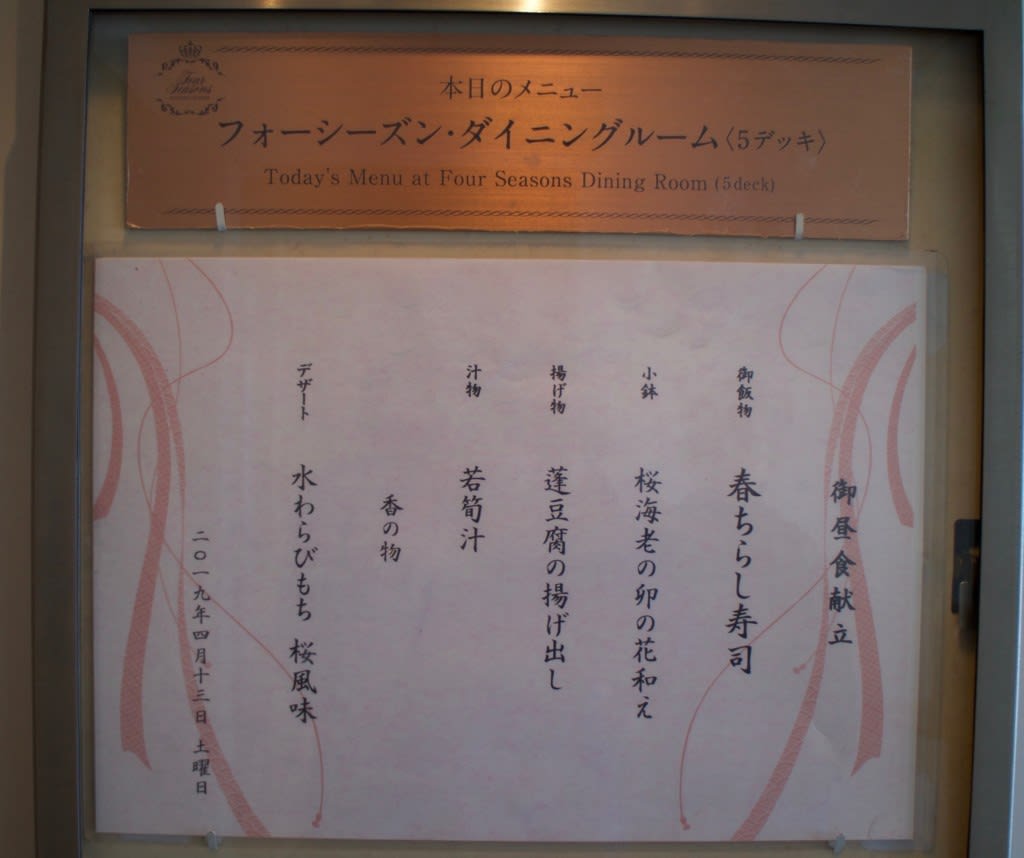 Four
Seasons
本日のメニュー
フォーシーズン・ダイニングルーム〈5デッキ〉
Today's Menu at Four Seasons Dining Room (5deck)
御昼食献立
御飯物 春ちらし寿司
小鉢 桜海老の卯の花和え
揚げ物 蓬豆腐の揚げ出し
汁物 若筍汁
香の物
デザート 水わらびもち 桜風味
二〇一九年四月十三日 土曜日